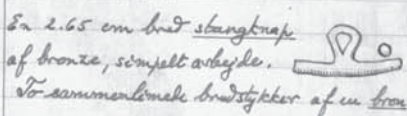 En 2.65 cm bred stangknap
af bronze, simpelt arbejde.
To sammenlimede brudstykker af en bron